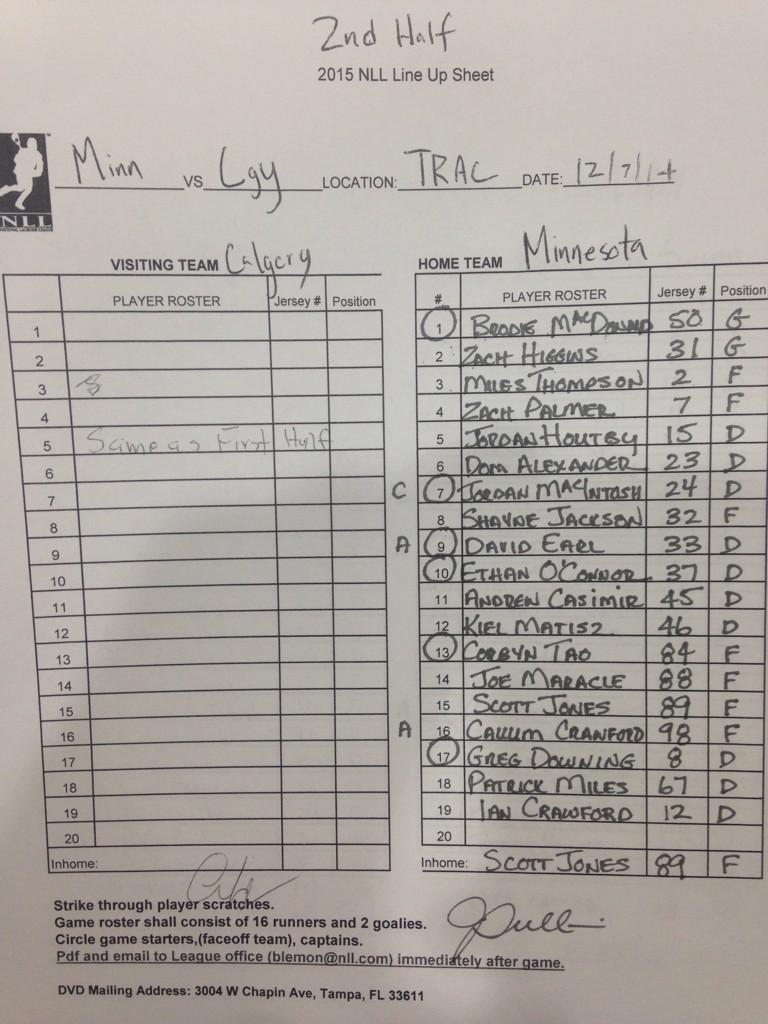 2nd Half
2015 NLL Line Up Sheet
NLL
Minn VS Cgy LOCATION: TRAC DATE: 12/7/14
VISITING TEAM Calgary
PLAYER ROSTER Jersey # Position
1
2
3
4
5 Same as First Half
6
7
8
9
10
11
12
13
14
15
16
17
18
19
20
Inhome:
HOME TEAM Minnesota
# PLAYER ROSTER Jersey # Position
1 BRODIE MACDONALD 50 G
2 ZACH HIGGINS 31 G
3 MILES THOMPSON 2 F
4 ZACH PALMER 7 F
5 JORDAN HOUTBY 15 D
6 DOM ALEXANDER 23 D
C 7 JORDAN MACINTOSH 24 D
8 SHAYNE JACKSON 32 F
A 9 DAVID EARL 33 D
10 ETHAN O'CONNOR 37 D
11 ANDREW CASIMIR 45 D
12 KIEL MATISZ 46 D
13 CORBYN TAO 84 F
14 JOE MARACLE 88 F
15 SCOTT JONES 89 F
A 16 CALLUM CRAWFORD 98 F
17 GREG DOWNING 8 D
18 PATRICK MILES 67 D
19 IAN CRAWFORD 12 D
20
Inhome: SCOTT JONES 89 F
Strike through player scratches.
Game roster shall consist of 16 runners and 2 goalies.
Circle game starters,(faceoff team), captains.
Pdf and email to League office (blemon@nll.com) immediately after game.
DVD Mailing Address: 3004 W Chapin Ave, Tampa, FL 33611